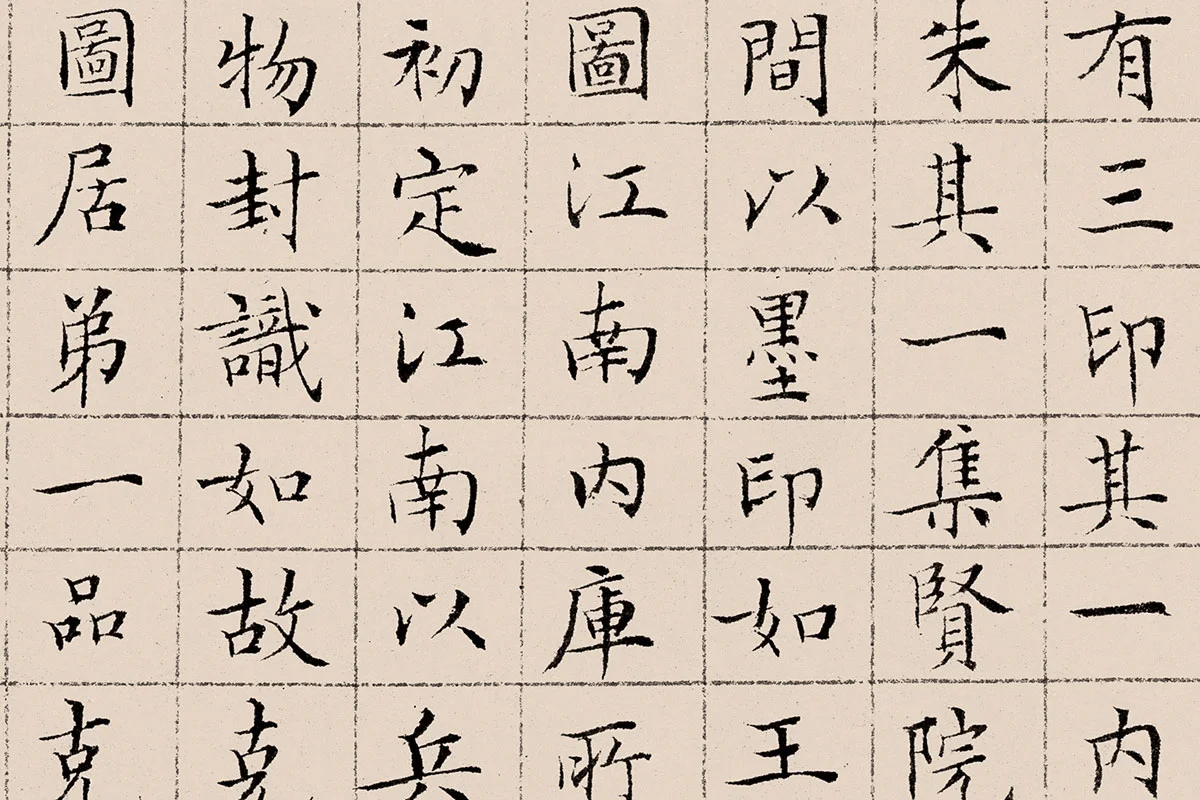 有三印其一内
朱其一集賢院
間以墨印如王
圖江南内庫所
初定江南以兵
物封識如故克
圖居弟一品克